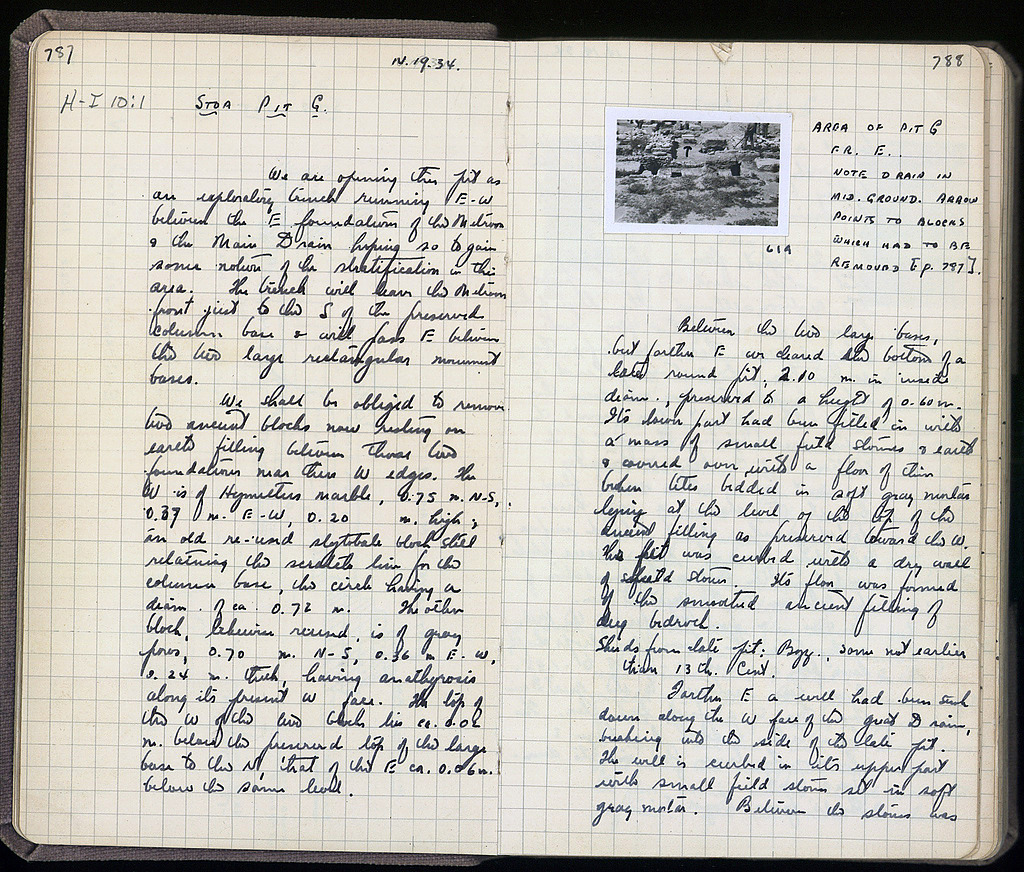 787
IV.19.34.
H-I 10:1 STOA PIT G.
We are opening this pit as
an exploratory trench running E-W
between the E foundations of the Metroon
& the Main Drain hoping so to gain
some notion of the stratification in this
area. The trench will leave the Metroon
front just to the S of the preserved
column base & will pass E between
the two large rectangular monument
bases.
We shall be obliged to remove
two ancient blocks now resting on
earth filling between those two
foundations near their W edges. The
W is of Hymettus marble, 0.75 m. N-S,
0.37 m. E-W, 0.20 m. high;
an old re-used stylobate block still
retaining the scratch line for the
column base, the circle having a
diam. of ca. 0.72 m. The other
block, likewise reused, is of gray
poros, 0.70 m. N-S, 0.36 m E-W,
0.24 m. thick, having anathyrosis
along its present W face. The top of
the W of the two blocks lies ca. 0.02
m. below the preserved top of the large
base to the N, that of the E ca. 0.06 m.
below the same level.
788
AREA OF PIT G
FR. E.
NOTE DRAIN IN
MID. GROUND. ARROW
POINTS TO BLOCKS
WHICH HAD TO BE
REMOVED [p. 787].
619
Between the two large bases,
but farther E we cleared the bottom of a
late round pit, 2.10 m. in inside
diam., preserved to a height of 0.60 m.
Its lower part had been filled in with
a mass of small field stones & earth
& covered over with a floor of thin
broken tiles bedded in soft gray mortar
lying at the level of the top of the
ancient filling as preserved toward the W.
The pit was curbed with a dry wall
of stones. Its floor was formed
of the smoothed ancient filling of
dug bedrock.
Sherds from late pit: Byz., some not earlier
than 13 th. Cent.
Farther E a well had been sunk
down along the W face of the great Drain,
breaking into the side of the late pit.
The well is curbed in its upper part
with small field stones set in soft
gray mortar. Between the stones was